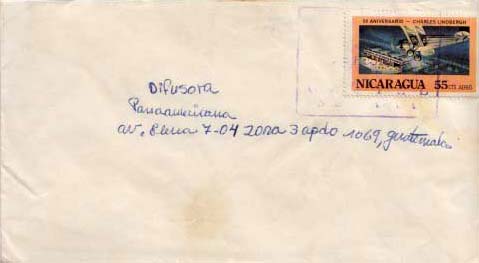 50 ANIVERSARIO — CHARLES LINDBERGH
NICARAGUA 55 CTS AEREO
Difusora
Panaamericana
av. Elena 7-04 Zona 3 apdo 1069, guatemala